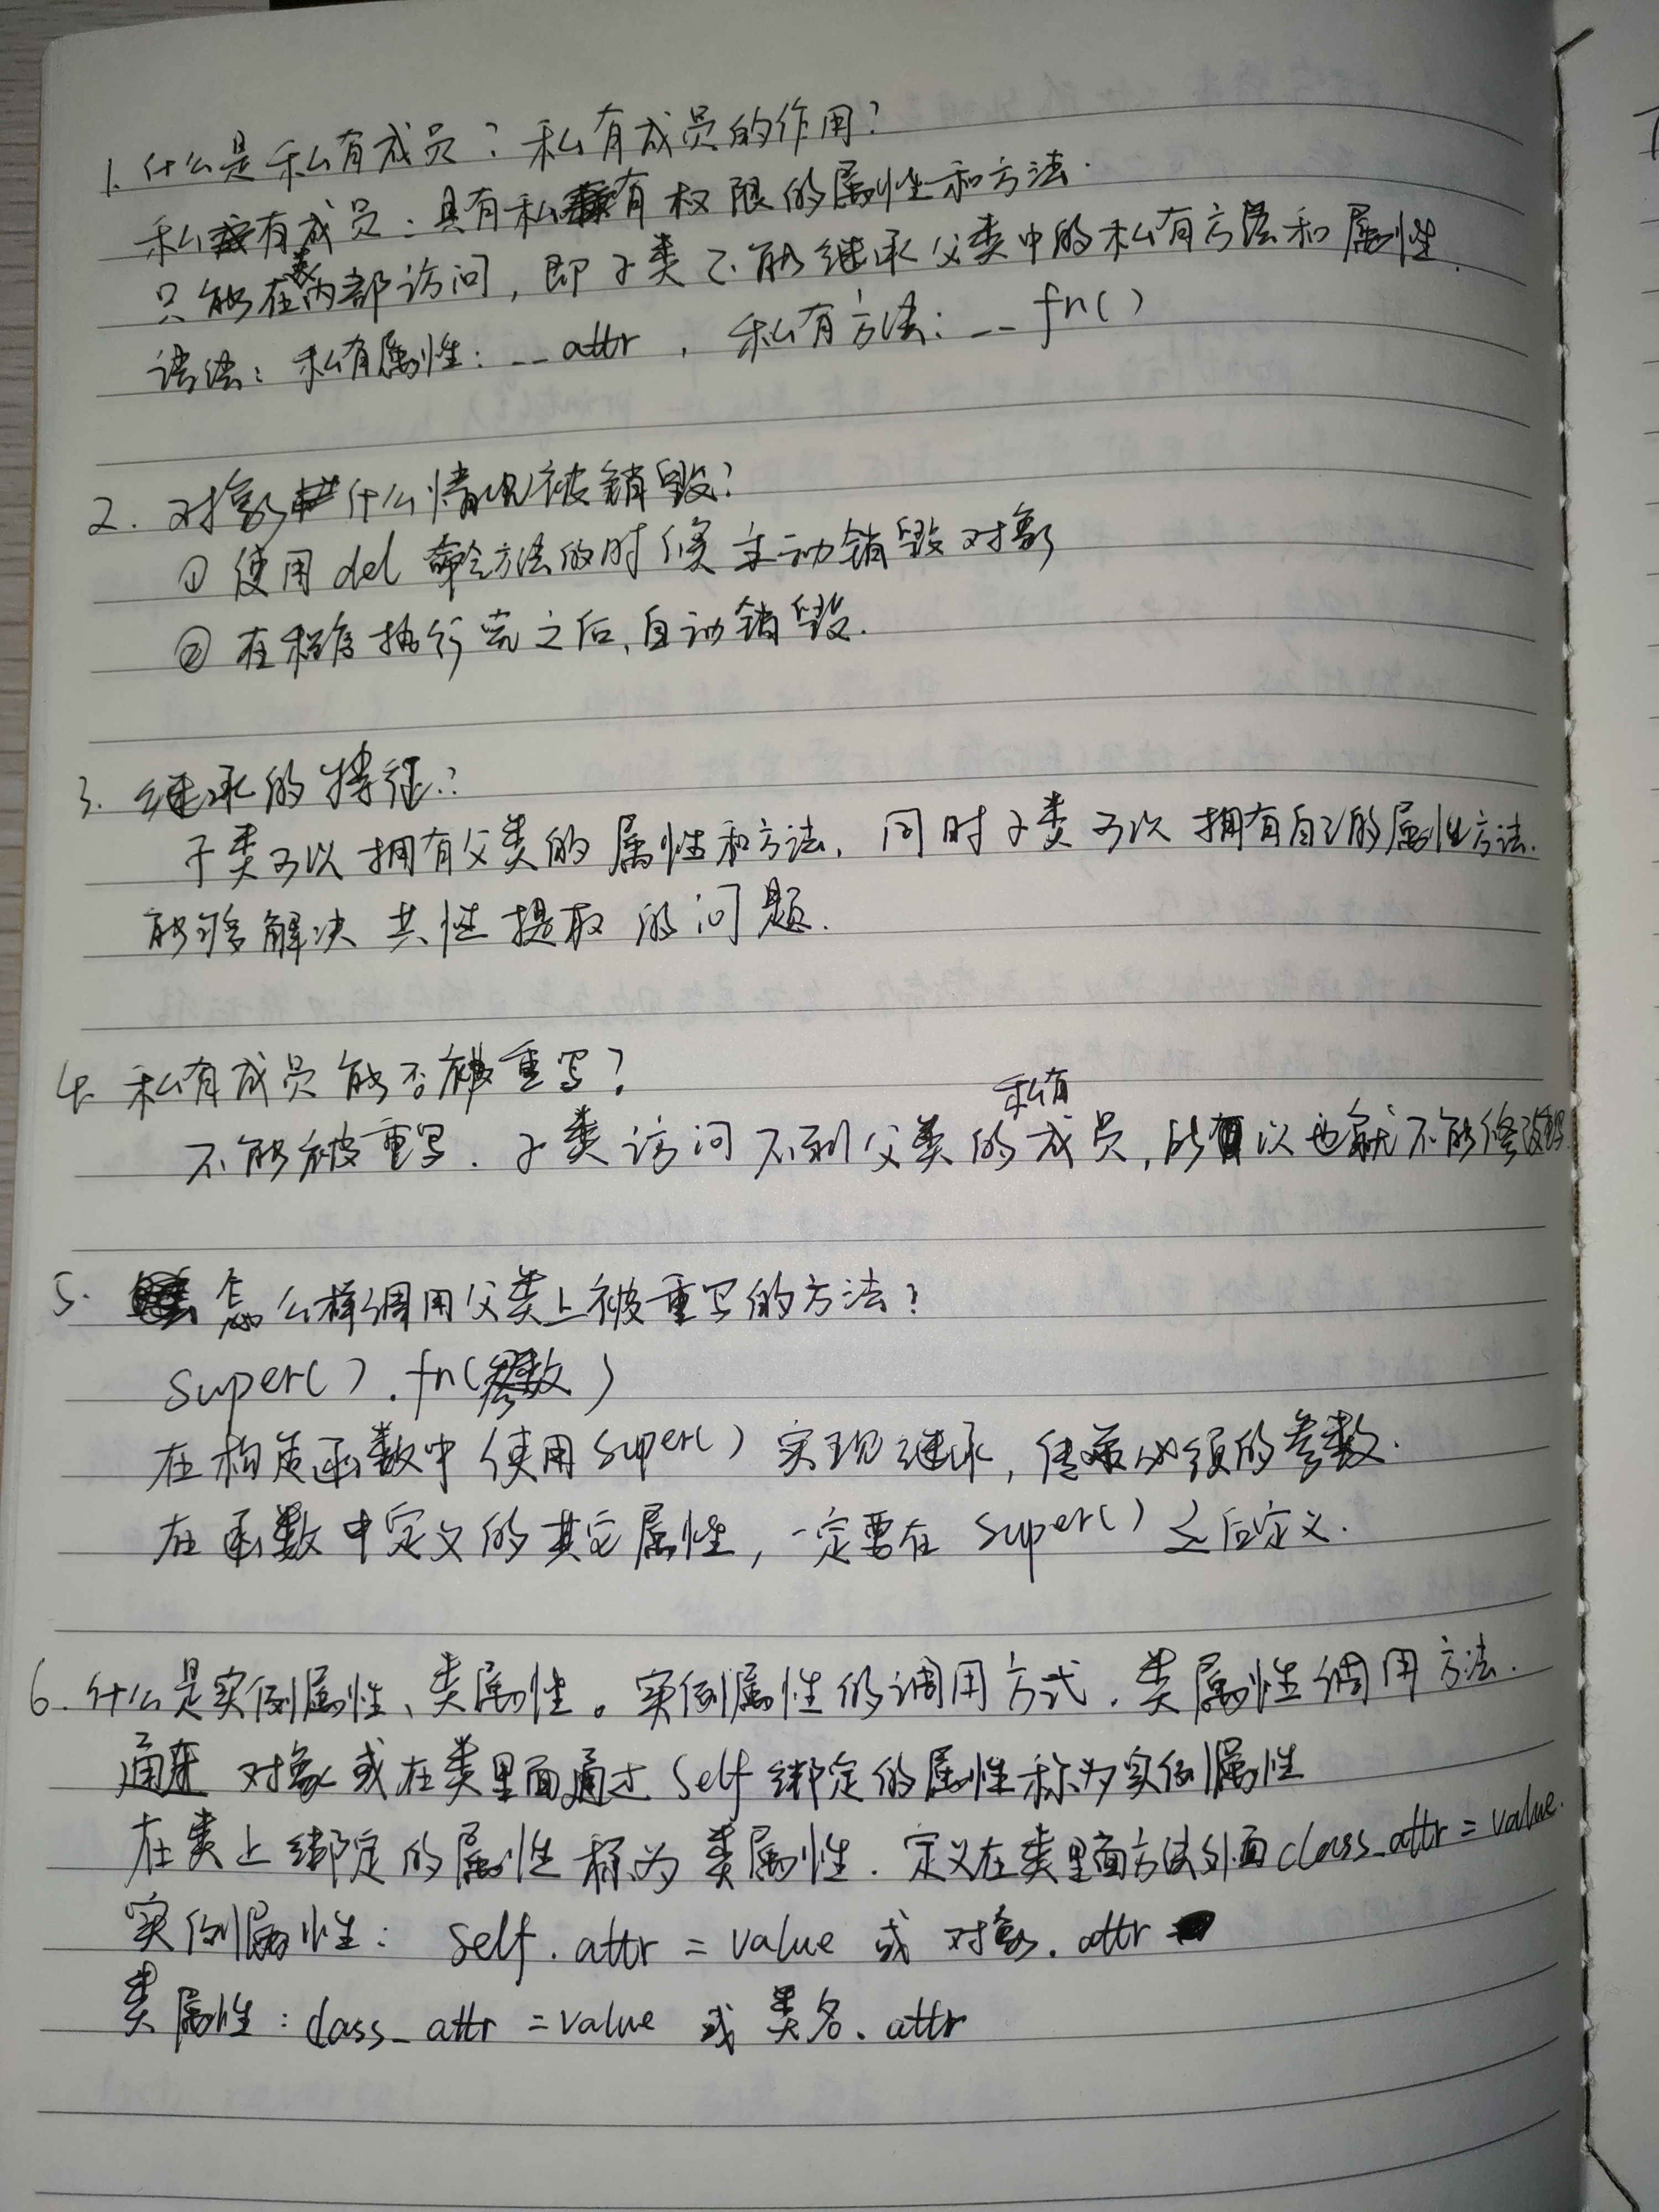 1. 什么是私有成员? 私有成员的作用?
私有成员: 具有私有权限的属性和方法.
只能在类内部访问, 即子类不能继承父类中的私有方法和属性.
语法: 私有属性: __attr , 私有方法: __fn()
2. 对象什么情况被销毁?
① 使用del 命令方法的时候 主动销毁对象
② 在程序执行完之后, 自动销毁.
3. 继承的特征:
子类可以拥有父类的属性和方法, 同时子类可以拥有自己的属性方法.
能够解决共性提取的问题.
4. 私有成员能否被重写?
不能被重写. 子类访问不到父类的私有成员, 所以也就不能修改
5. 怎么样调用父类上被重写的方法?
super().fn(参数)
在构造函数中使用super() 实现继承, 传递必须的参数.
在函数中定义的其它属性, 一定要在super() 之后定义.
6. 什么是实例属性、类属性。实例属性的调用方式. 类属性调用方法.
通过 对象或在类里面通过self绑定的属性称为实例属性
在类上绑定的属性称为类属性. 定义在类里面方法外面class_attr = value.
实例属性: self.attr = value 或 对象.attr
类属性: class_attr = value 或 类名.attr